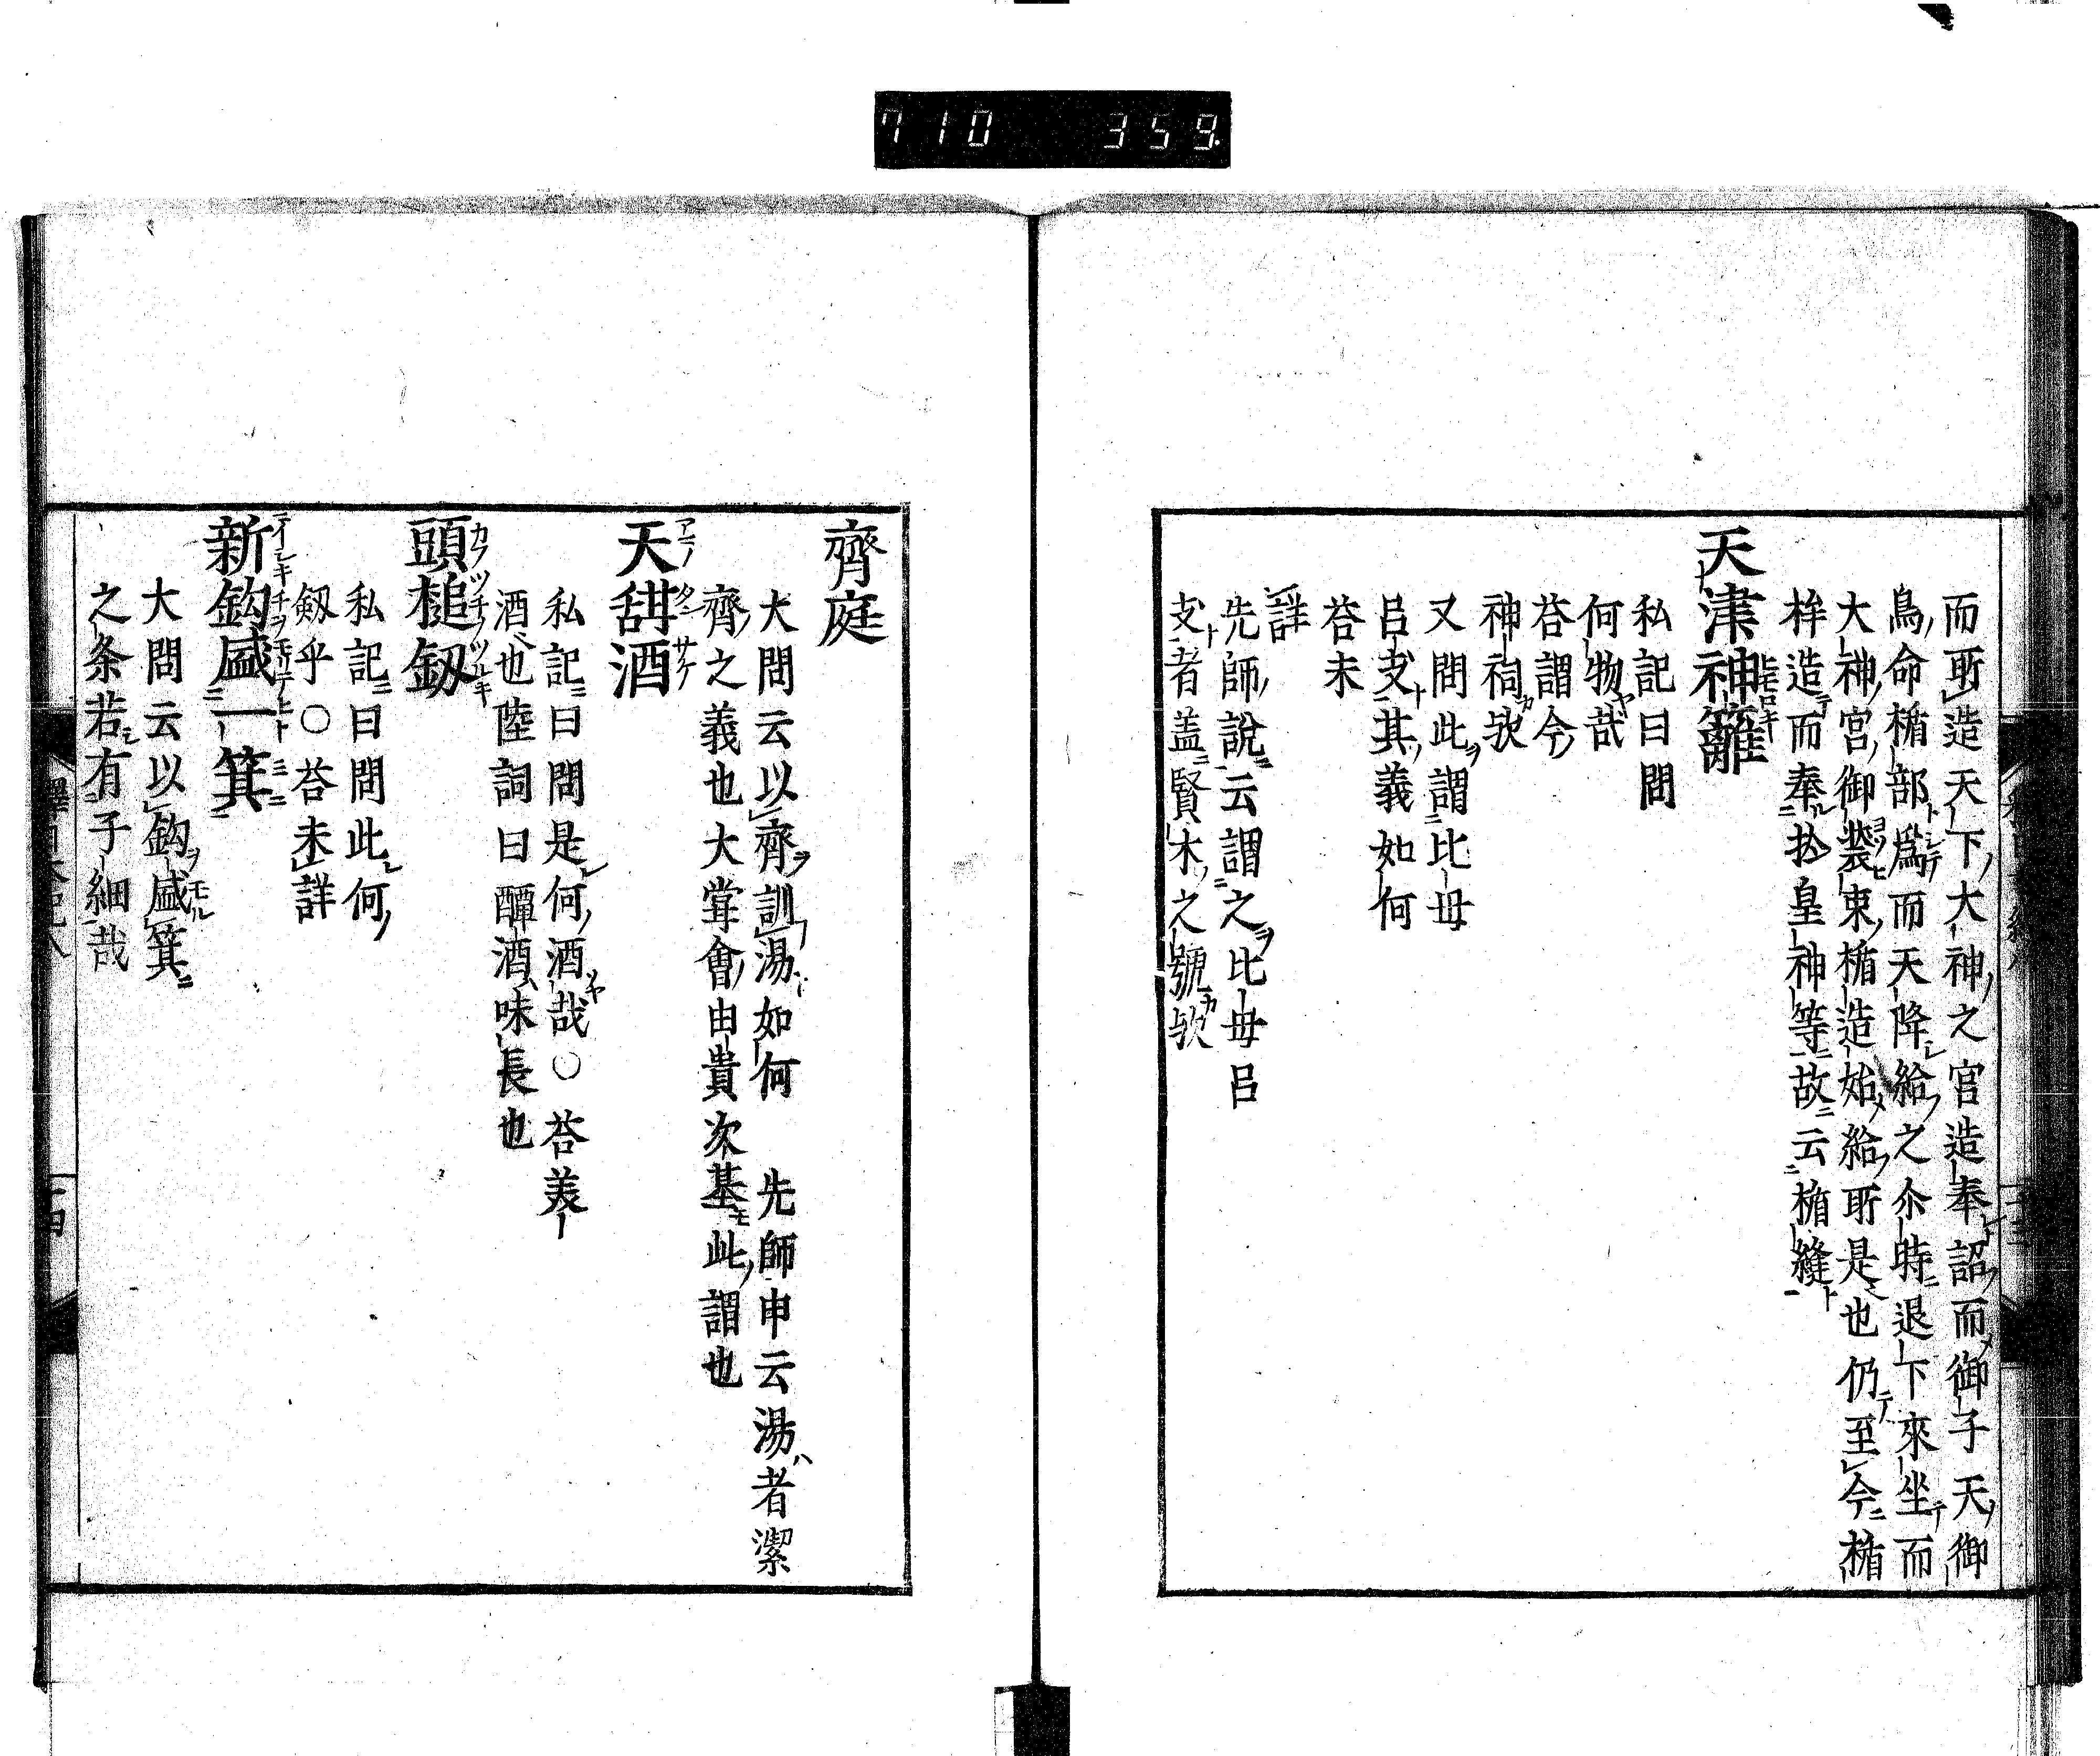 710 359
而所造天下大神之宮造奉詔而御子天御
鳥命楯部爲而天降給之尒時退下來坐而
大神宮御裝束楯造始給所是也仍至今楯
桙造而奉於皇神等故云楯縫
天津神籬
私記曰問
何物哉
荅謂今
神祠欤
又問此謂比母
呂支其義如何
荅未
詳
先師說云謂之比母呂
支者盖賢木之號欤
齊庭
大問云以齊訓湯如何 先師申云湯者潔
齊之義也大甞會由貴次基此謂也
天甜酒
私記曰問是何酒哉○荅美
酒也陸詞曰醰酒味長也
頭槌釼
私記曰問此何
釼乎○荅未詳
新鈎盛一箕
大問云以鈎盛箕
之条若有子細哉